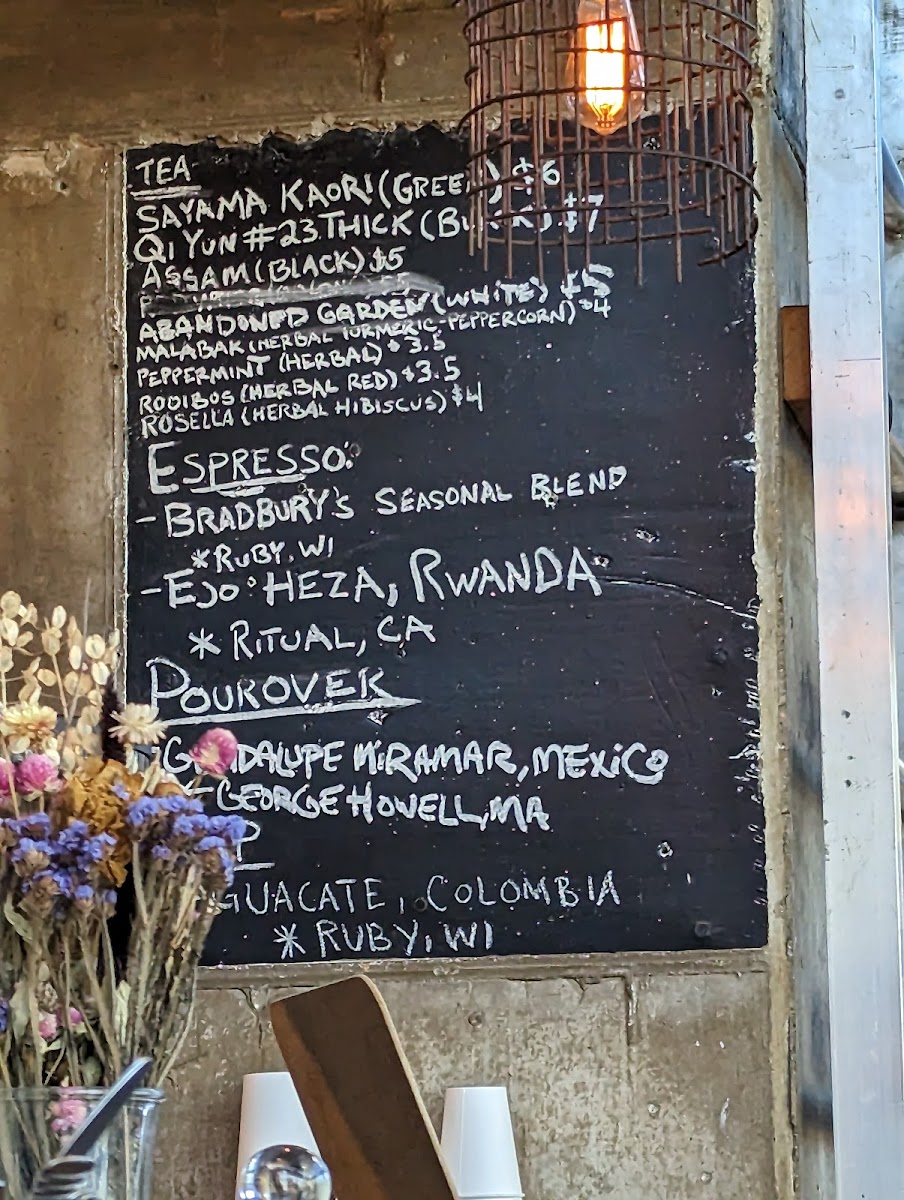 TEA
SAYAMA KAORI (GREEN) $6
QI YUN #23 THICK (BLACK) $7
ASSAM (BLACK) $5
ABANDONED GARDEN (WHITE) $5
MALABAR (HERBAL TURMERIC-PEPPERCORN) $4
PEPPERMINT (HERBAL) $3.5
ROOIBOS (HERBAL RED) $3.5
ROSELLA (HERBAL HIBISCUS) $4
ESPRESSO:
- BRADBURY'S SEASONAL BLEND
* RUBY, WI
- EJO HEZA, RWANDA
* RITUAL, CA
POUROVER
GUADALUPE MIRAMAR, MEXICO
GEORGE HOWELL, MA
P
GUACATE, COLOMBIA
* RUBY, WI